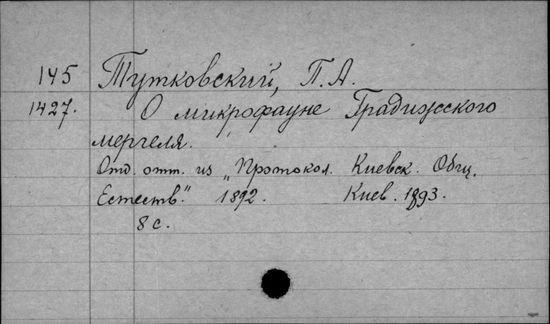 145 Тутковский, П. А.
1427. О микрофауне Градижского
мергеля.
Отд. отт. из „Протокол. Киевск. Общ.
Естеств." 1892. Киев. 1893.
8 с.